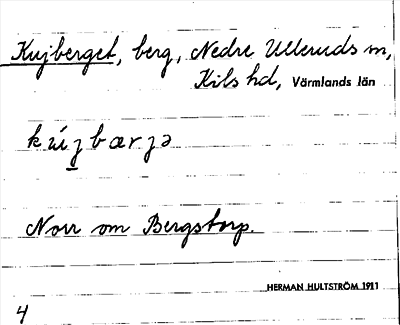 Kujberget, berg, Nedre Ulleruds sn,
Kils hd, Värmlands län
kúȷbærȷə
Norr om Bergstorp.
HERMAN HULTSTRÖM 1911
4